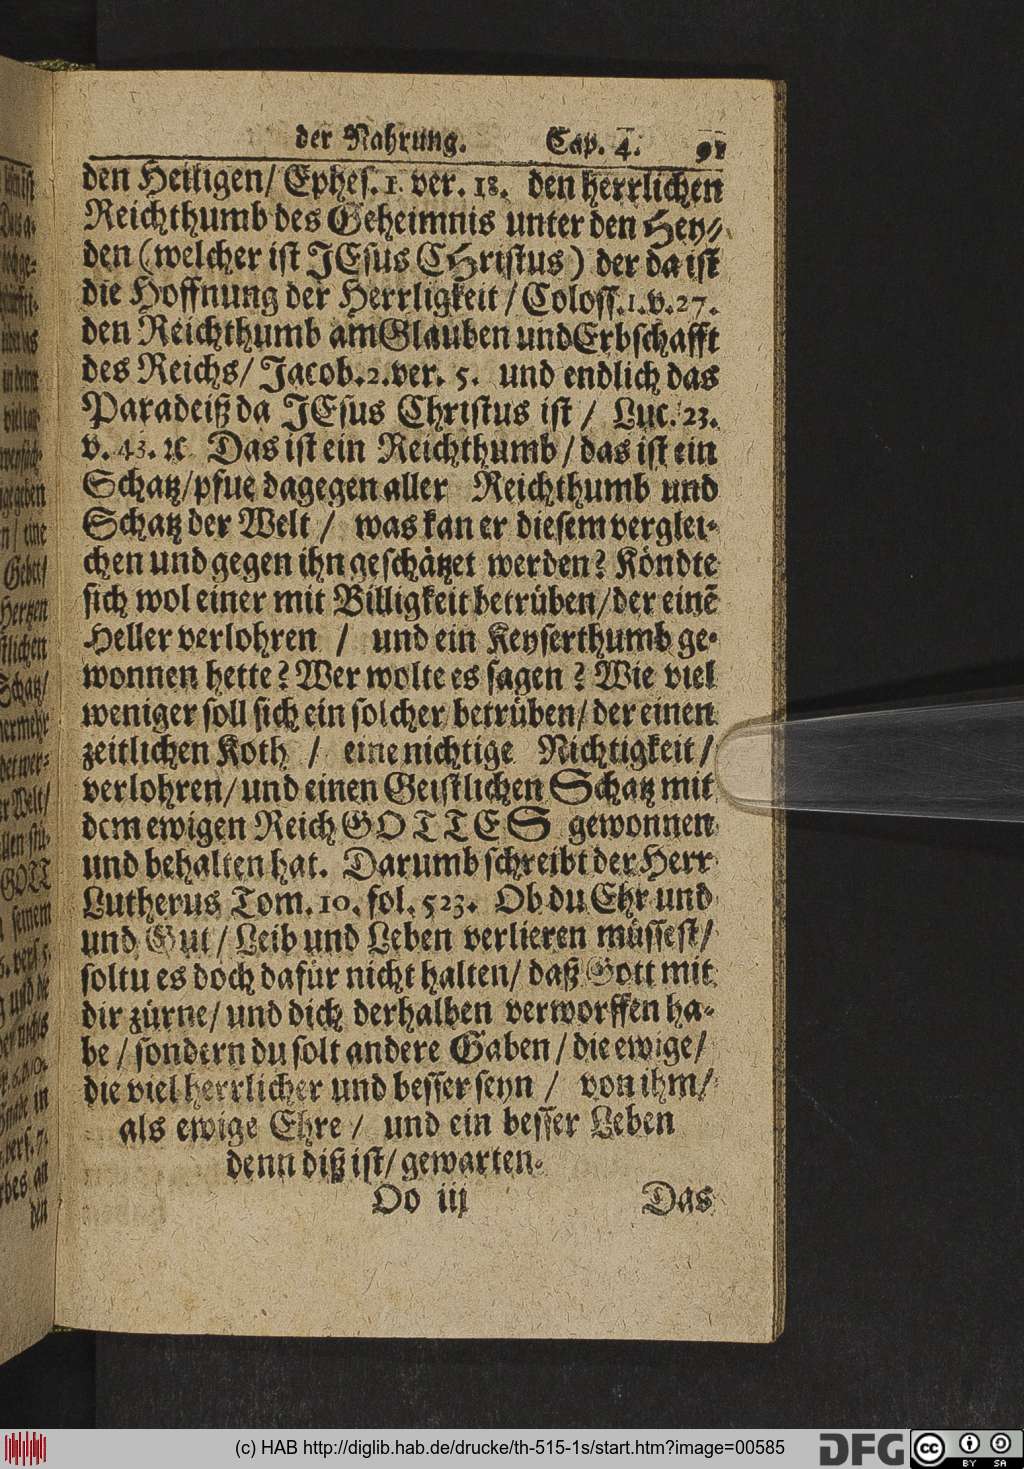 der Nahrung. Cap. 4. 91
den Heiligen/ Ephes. 1. ver. 18. den herrlichen
Reichthumb des Geheimnis unter den Hey⸗
den (welcher ist JEsus CHristus) der da ist
die Hoffnung der Herrligkeit / Coloss. 1. v. 27.
den Reichthumb am Glauben und Erbschafft
des Reichs/ Jacob. 2. ver. 5. und endlich das
Paradeiß da JEsus Christus ist / Luc. 23.
v. 43. ꝛc. Das ist ein Reichthumb / das ist ein
Schatz/ pfue dagegen aller Reichthumb und
Schatz der Welt / was kan er diesem verglei⸗
chen und gegen ihn geschätzet werden? Köndte
sich wol einer mit Billigkeit betrüben/ der einẽ
Heller verlohren / und ein Keyserthumb ge⸗
wonnen hette? Wer wolte es sagen? Wie viel
weniger soll sich ein solcher betrüben/ der einen
zeitlichen Koth / eine nichtige Nichtigkeit /
verlohren/ und einen Geistlichen Schatz mit
dem ewigen Reich GOTTES gewonnen
und behalten hat. Darumb schreibt der Herr
Lutherus Tom. 10. fol. 523. Ob du Ehr und
und Gut / Leib und Leben verlieren müssest/
soltu es doch dafür nicht halten/ daß Gott mit
dir zürne/ und dich derhalben verworffen ha⸗
be / sondern du solt andere Gaben / die ewige/
die viel herrlicher und besser seyn / von ihm/
als ewige Ehre / und ein besser Leben
denn diß ist/ gewarten.
Oo iij Das
(c) HAB http://diglib.hab.de/drucke/th-515-1s/start.htm?image=00585
DFG
cc BY SA